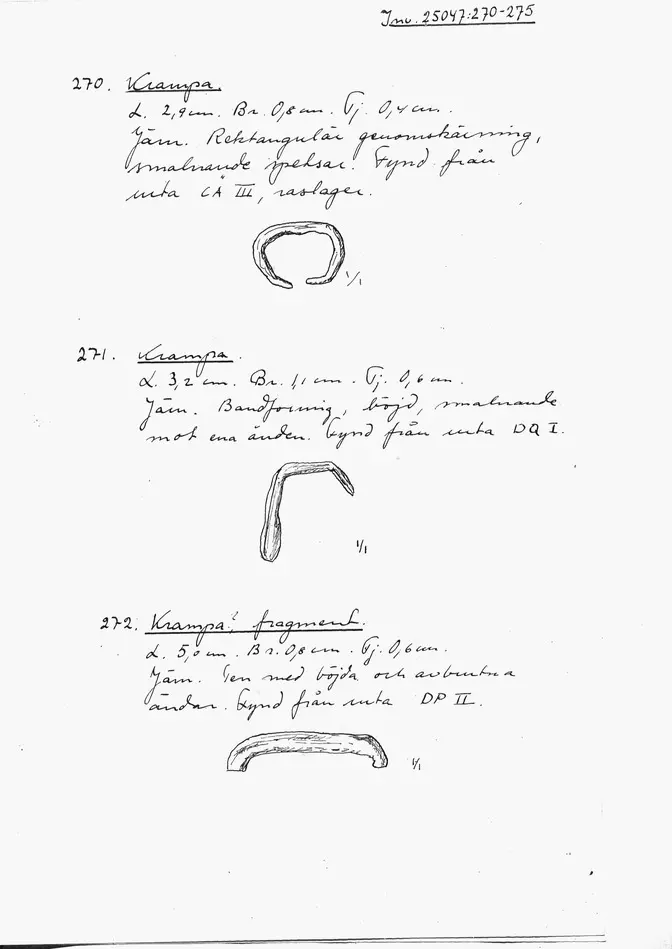 Inv. 25047:270-275
270. Krampa.
L. 2,9 cm. Br. 0,8 cm. Tj. 0,4 cm.
Järn. Rektangulär genomskärning,
smalnande spetsar. Fynd från
ruta CÅ III, raslager.
1/1
271. Krampa.
L. 3,2 cm. Br. 1,1 cm. Tj. 0,6 cm.
Järn. Bandformig, böjd, smalnande
mot ena änden. Fynd från ruta DQ I.
1/1
272. Krampa?, fragment.
L. 5,0 cm. Br. 0,8 cm. Tj. 0,6 cm.
Järn. Ten med böjda och avbrutna
ändar. Fynd från ruta DP II.
1/1